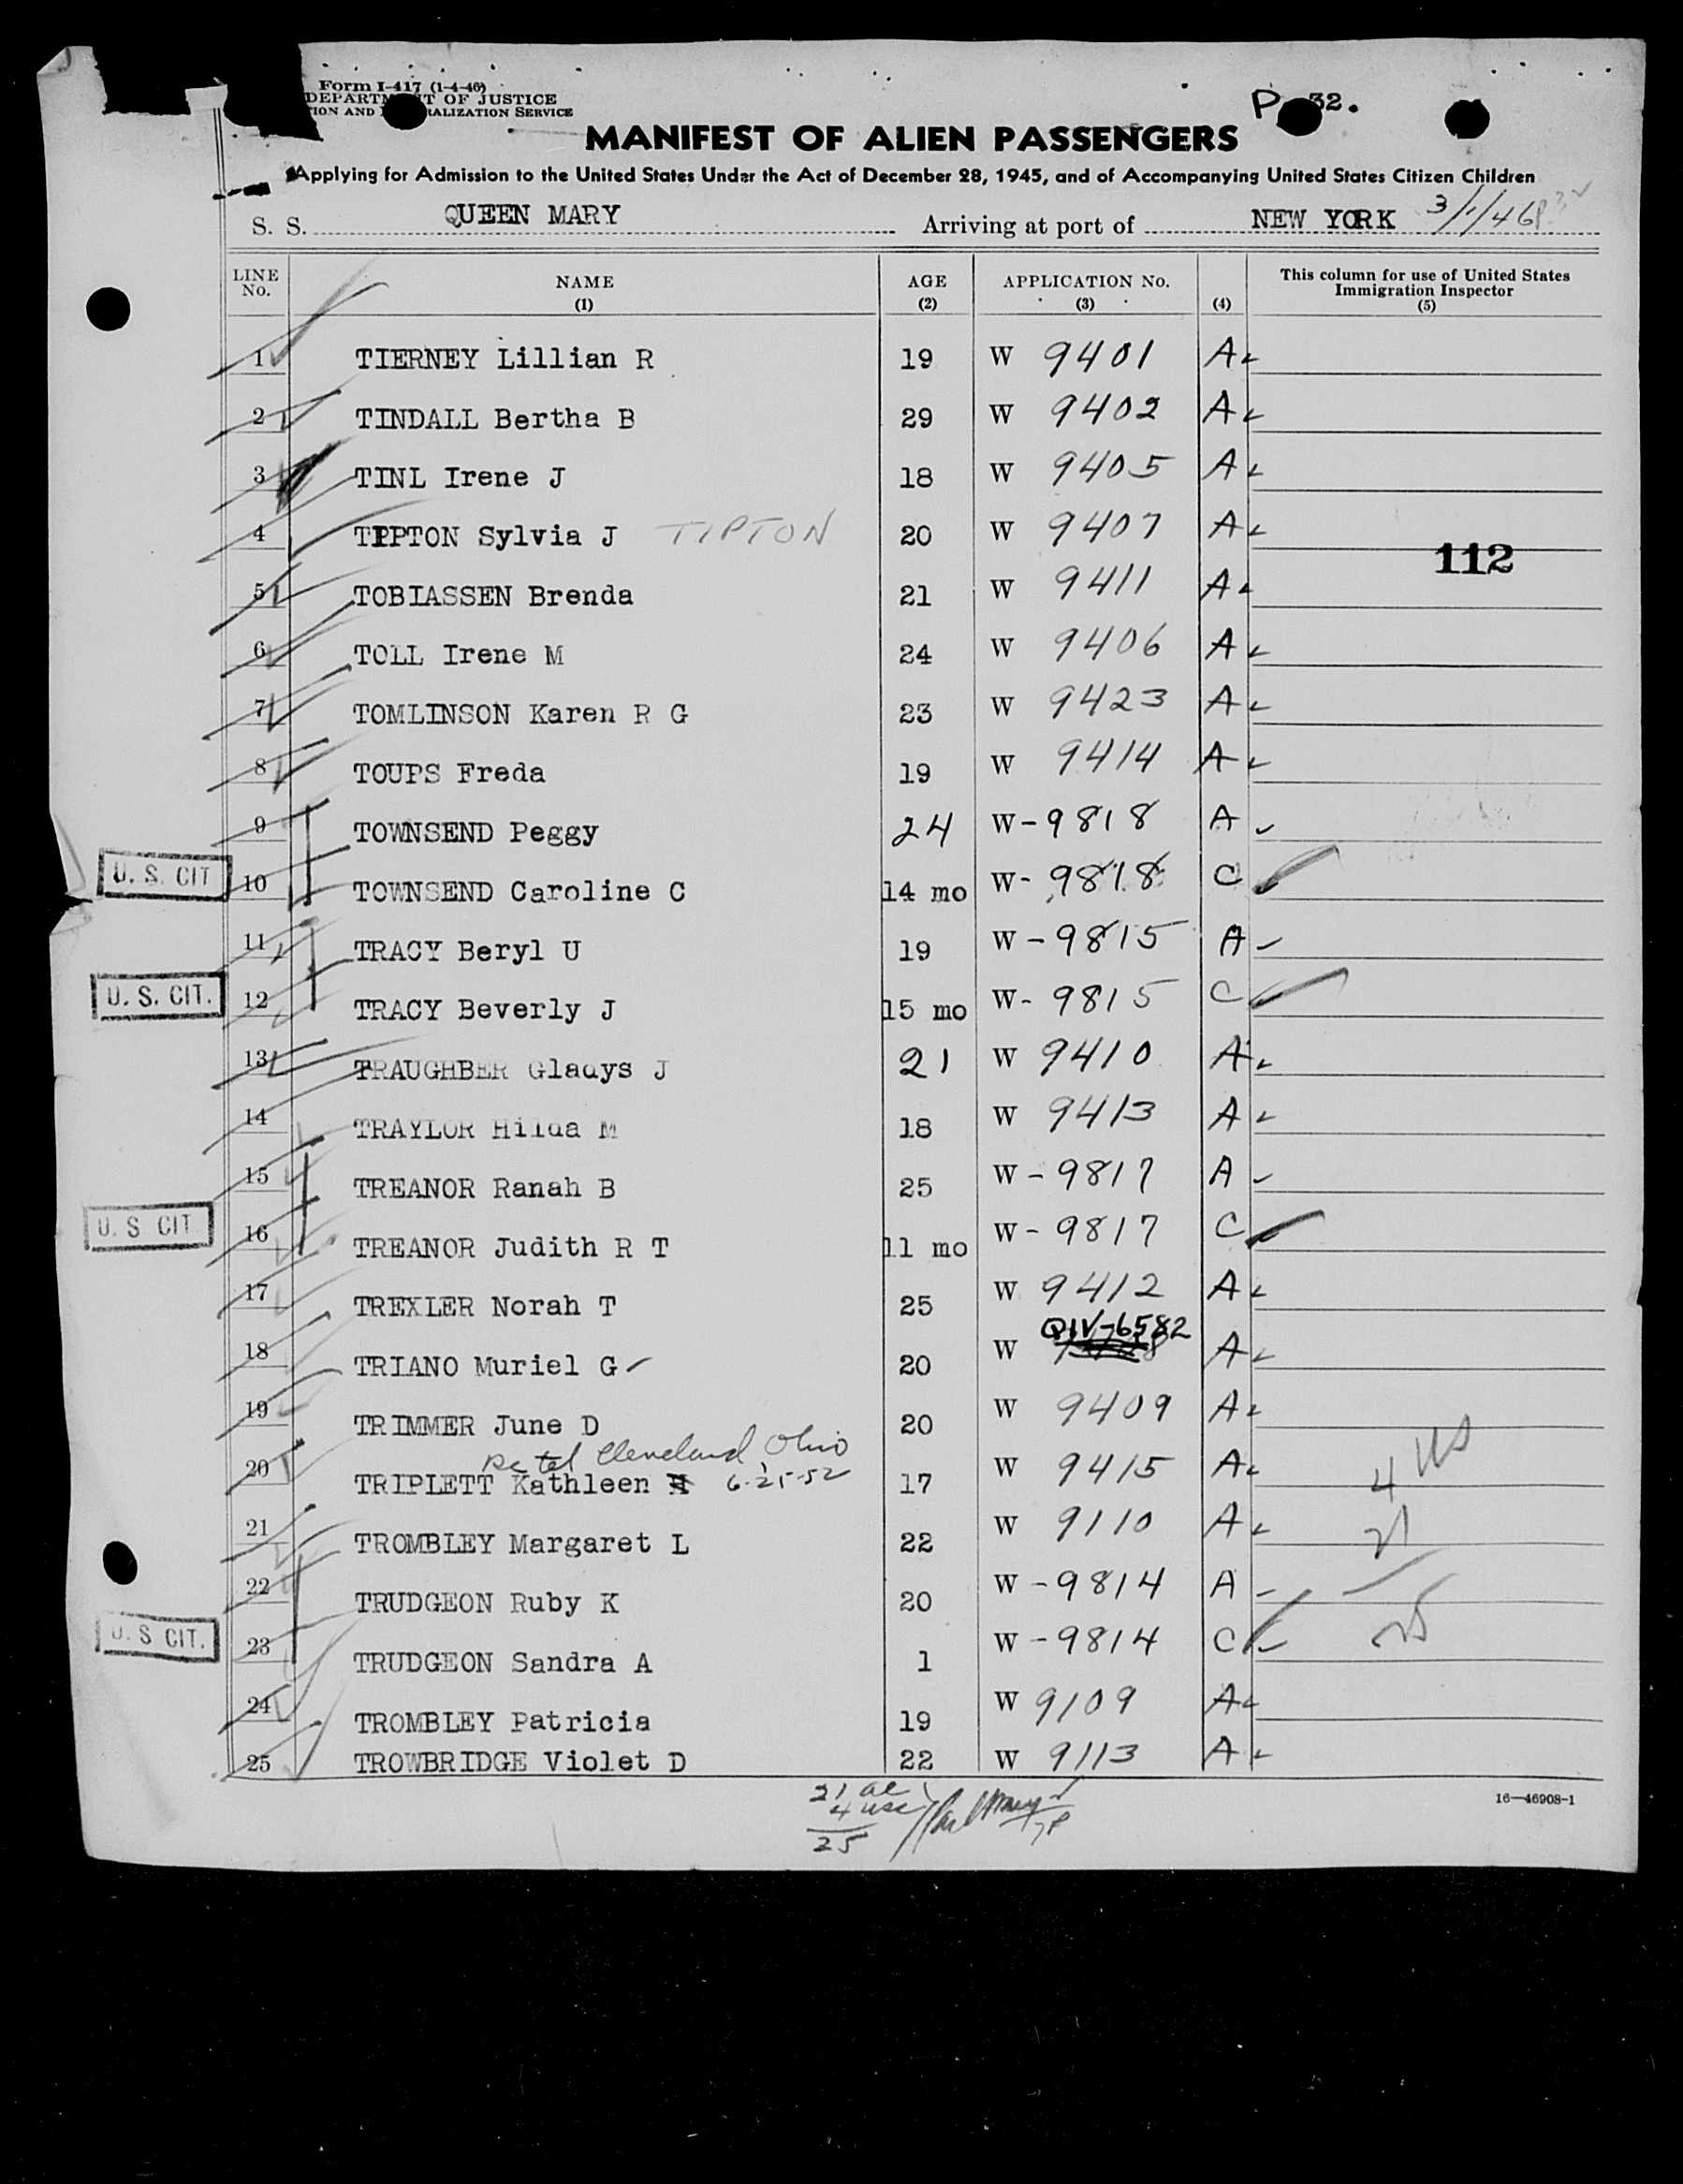 Form I-417 (1-4-46)
DEPARTMENT OF JUSTICE
ION AND NATURALIZATION SERVICE
P 32.
MANIFEST OF ALIEN PASSENGERS
Applying for Admission to the United States Under the Act of December 28, 1945, and of Accompanying United States Citizen Children
S. S. QUEEN MARY Arriving at port of NEW YORK 3/1/46 P.32
LINE No. NAME (1) AGE (2) APPLICATION No. (3) (4) This column for use of United States Immigration Inspector (5)
1 TIERNEY Lillian R 19 W 9401 A
2 TINDALL Bertha B 29 W 9402 A
3 TINL Irene J 18 W 9405 A
4 TIPTON Sylvia J TIPTON 20 W 9407 A
112
5 TOBIASSEN Brenda 21 W 9411 A
6 TOLL Irene M 24 W 9406 A
7 TOMLINSON Karen R G 23 W 9423 A
8 TOUPS Freda 19 W 9414 A
9 TOWNSEND Peggy 24 W-9818 A
U. S. CIT 10 TOWNSEND Caroline C 14 mo W-9818 C
11 TRACY Beryl U 19 W-9815 A
U. S. CIT. 12 TRACY Beverly J 15 mo W-9815 C
13 TRAUGHBER Gladys J 21 W 9410 A
14 TRAYLOR Hilda M 18 W 9413 A
15 TREANOR Ranah B 25 W-9817 A
U. S CIT 16 TREANOR Judith R T 11 mo W-9817 C
17 TREXLER Norah T 25 W 9412 A
18 TRIANO Muriel G 20 W QIV-6582 A
19 TRIMMER June D 20 W 9409 A
Cleveland, Ohio
20 TRIPLETT Kathleen 6-25-52 17 W 9415 A 4 US
21 TROMBLEY Margaret L 22 W 9110 A 21
22 TRUDGEON Ruby K 20 W-9814 A
U. S CIT. 23 TRUDGEON Sandra A 1 W-9814 C 25
24 TROMBLEY Patricia 19 W 9109 A
25 TROWBRIDGE Violet D 22 W 9113 A
21 al
4 usc
25
16—46908-1